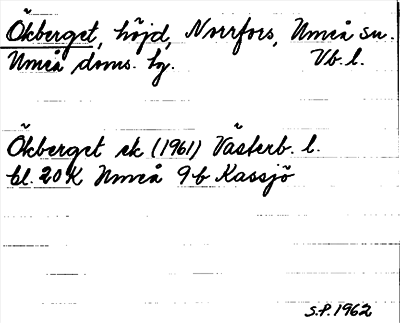 Ökberget, höjd, Norrfors, Umeå sn.
Umeå doms. hg. Vb. l.
Ökberget ek (1961) Västerb. l.
bl. 20 K Umeå 9 b Kassjö
S.P. 1962